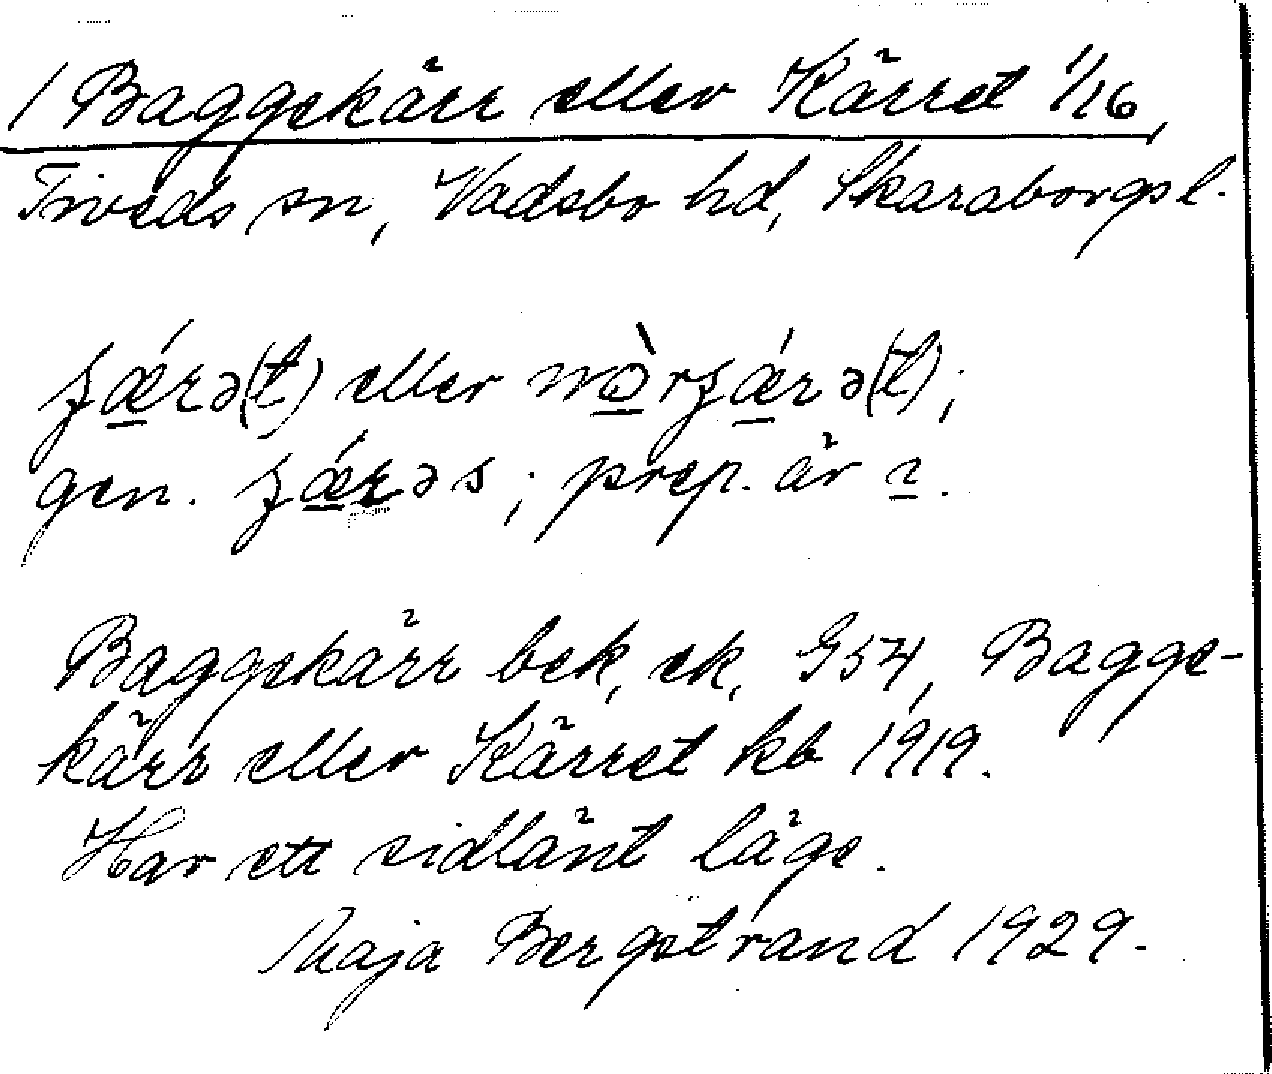 / Baggekärr eller Kärret 1/16,
Tiveds sn, Vadsbo hd, Skaraborgs l.
ʒǽrə(t) eller mòrʒǽrə(t);
gen. ʒǽrəs; prep. är ı.
Baggekärr bek, ek, G54, Bagge-
kärr eller Kärret kb 1919.
Har ett sidlänt läge.
Maja Bergstrand 1929.